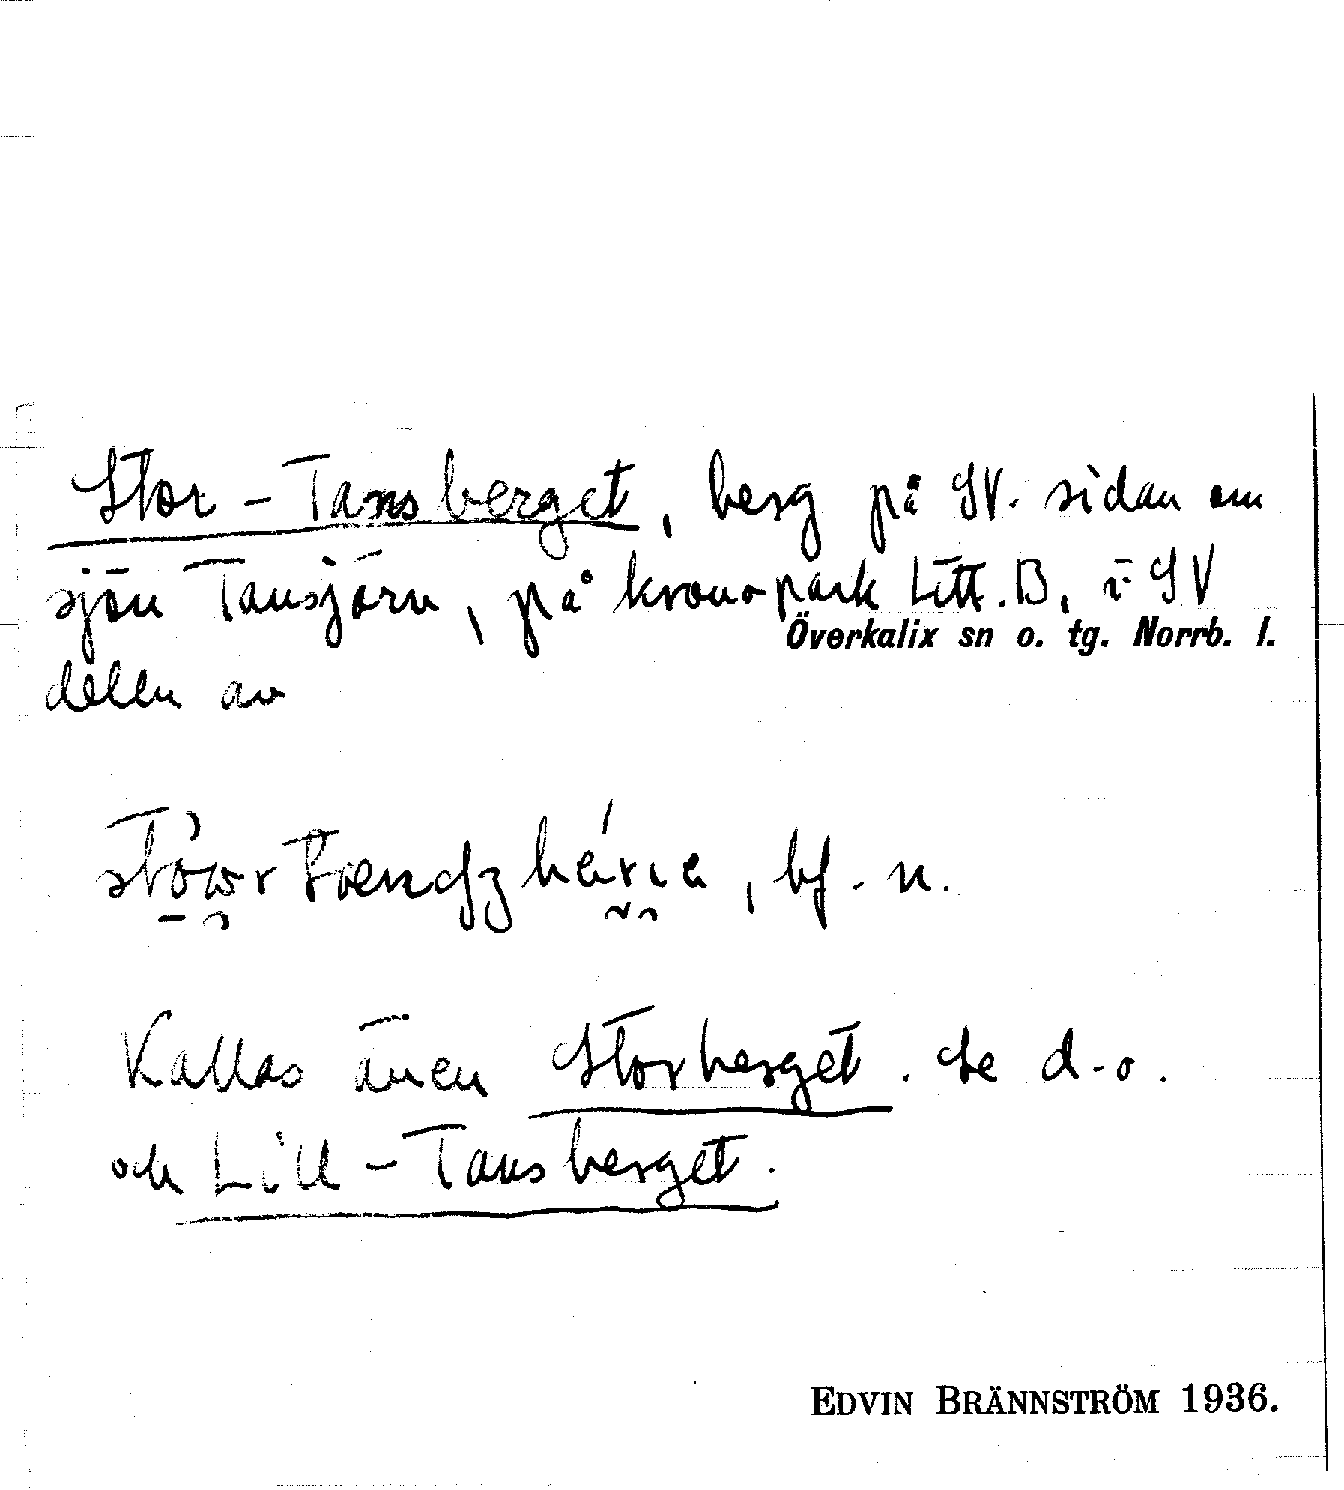 Stor-Tansberget, berg på SV. sidan om
sjön Tansjärn, på kronopark Litt. B, i SV
Överkalix sn o. tg. Norrb. l.
delen av
, bf. n.
Kallas även Storberget. Se d-o.
och Lill-Tansberget.
EDVIN BRÄNNSTRÖM 1936.